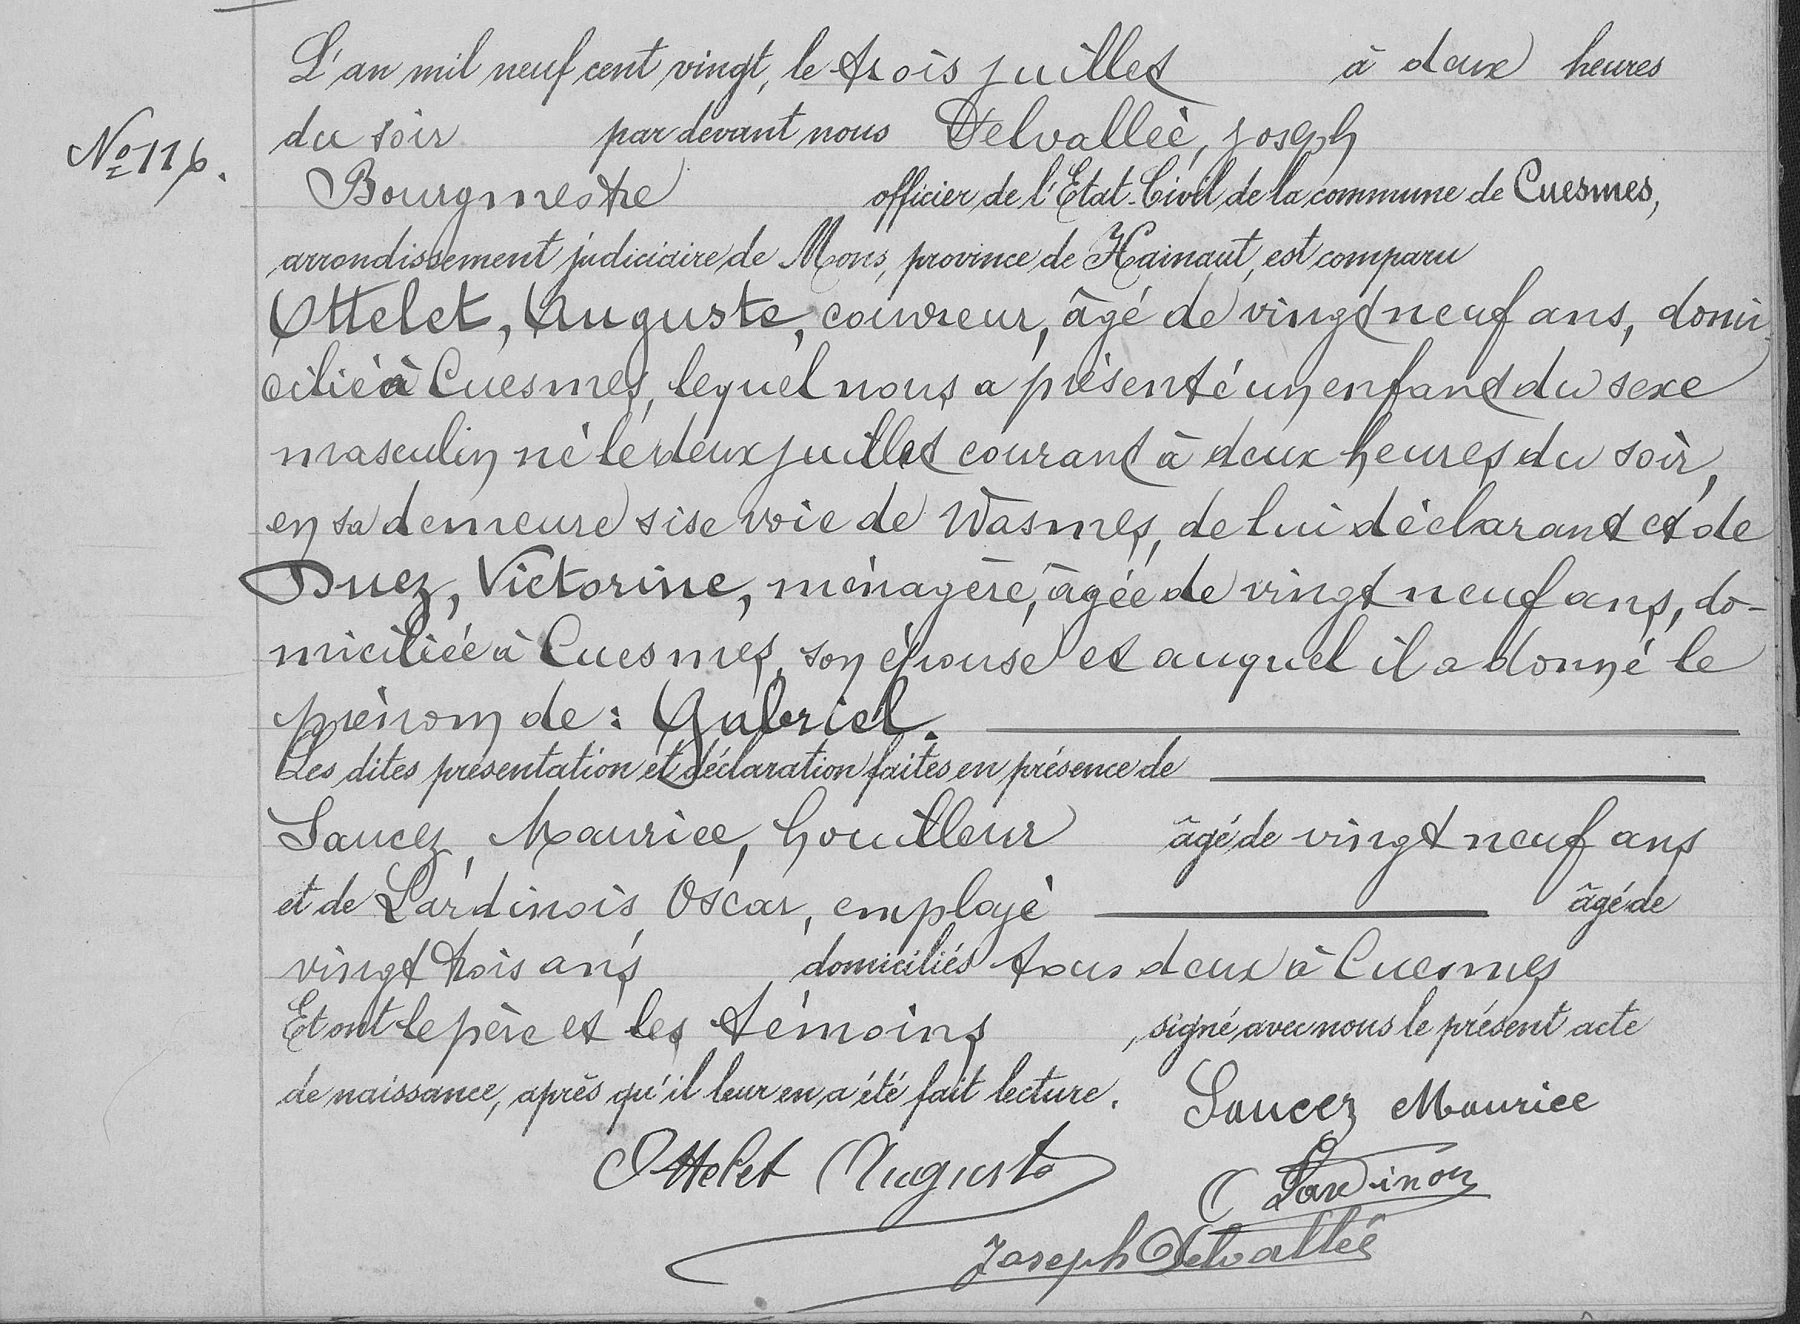 L'an mil neuf cent vingt, le trois juillet à deux heures
No 116.
du soir par devant nous Delvallée, Joseph
Bourgmestre officier de l'Etat-Civil de la commune de Cuesmes,
arrondissement judiciaire de Mons, province de Hainaut, est comparu
Ottelet, Auguste, couvreur, âgé de vingt neuf ans, domi
cilié à Cuesmes, lequel nous a présenté un enfant du sexe
masculin né le deux juillet courant à deux heures du soir,
en sa demeure sise voie de Wasmes, de lui déclarant et de
Duez, Victorine, ménagère, âgée de vingt neuf ans, do-
miciliée à Cuesmes, son épouse et auquel il a donné le
prénom de : Gabriel.
Les dites présentation et déclaration faites en présence de
Saucez, Maurice, houilleur âgé de vingt neuf ans
et de Lardinois, Oscar, employé âgé de
vingt trois ans domiciliés tous deux à Cuesmes
Et ont le père et les témoins, signé avec nous le présent acte
de naissance, après qu'il leur en a été fait lecture.
Saucez Maurice
Ottelet Auguste
O Lardinois
Joseph Delvallée